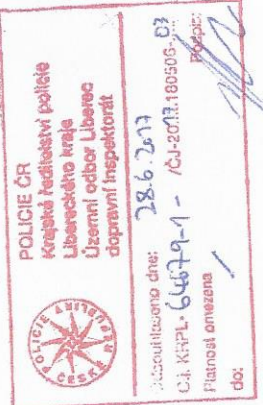 POLICIE ČR
Krajské ředitelství policie
Libereckého kraje
Územní odbor Liberec
dopravní inspektorát
POLICIE
ČESKÉ REPUBLIKY
Odsouhlaseno dne: 28.6.2017
Č.j. KRPL- 64679-1- /ČJ-2017-180506-03
Platnost omezena
do: /
Podpis: